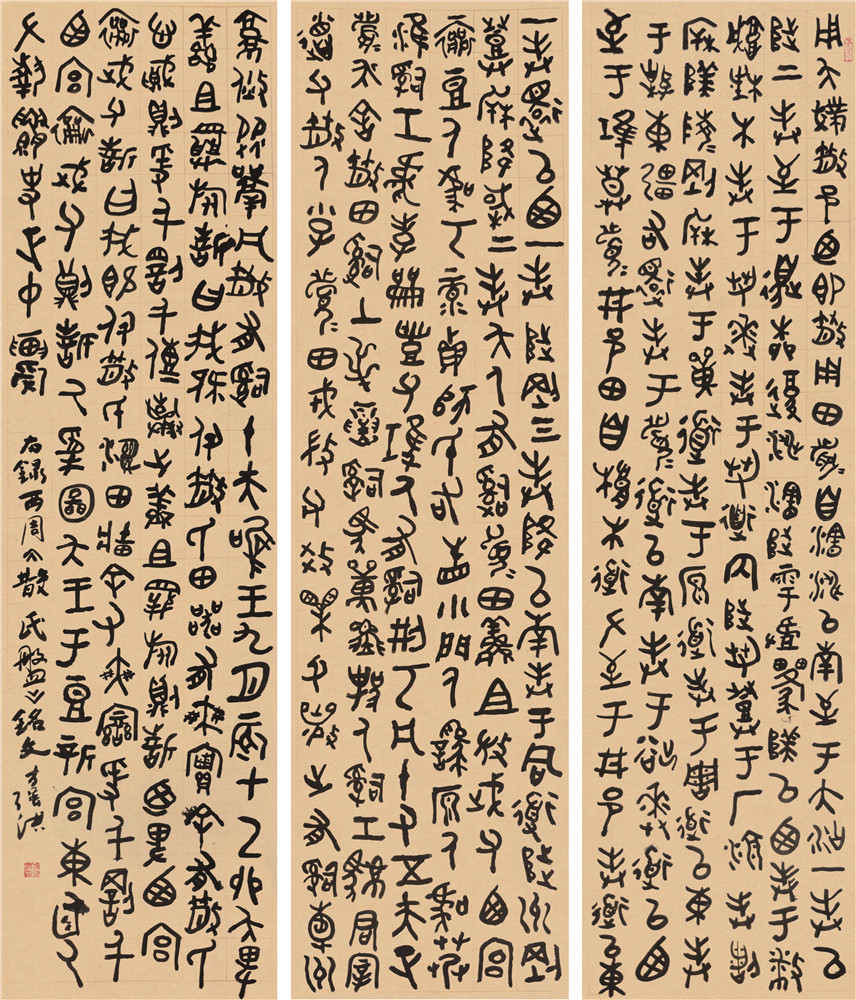 用夨散邑廼即散用田眉自瀗涉以南至于大沽一封以
陟二封至于邊柳復涉瀗陟雩以西封于播
城楮木封于芻逨封于芻道內陟芻登于厂湶封
陵剛封于道封于原道封于周道以東封
于東疆右還封于眉道以南封于逨道以西
至于鴻莫眉井邑田自桹木道左至于井邑封道以東
一封還以西一封陟剛三封降以南封于同道陟州剛
登降棫二封夨人有嗣眉田鮮且微武父西宮
襄豆人虞丂彔貞師氏右眚小門人繇原人虞艿
淮嗣工虎孝龠豐父唯人有嗣刑丂凡十又五夫正
眉夨舍散田嗣土嗣馬單邦人嗣工君宰
德父散人小子眉田戎微父效父襄之有嗣橐州
從凡散有嗣十夫唯王九月辰在乙卯夨卑
鮮且旅誓曰我既付散氏田器有爽實余有散氏
心賊則爰千罰千傳棄之鮮且旅則誓廼卑西宮
襄武父誓曰我既付散氏濕田牆田余有爽變爰千罰千
西宮襄武父則誓厥受圖夨王于豆新宮東廷厥
左執史正中農
右錄西周散氏盤之銘文